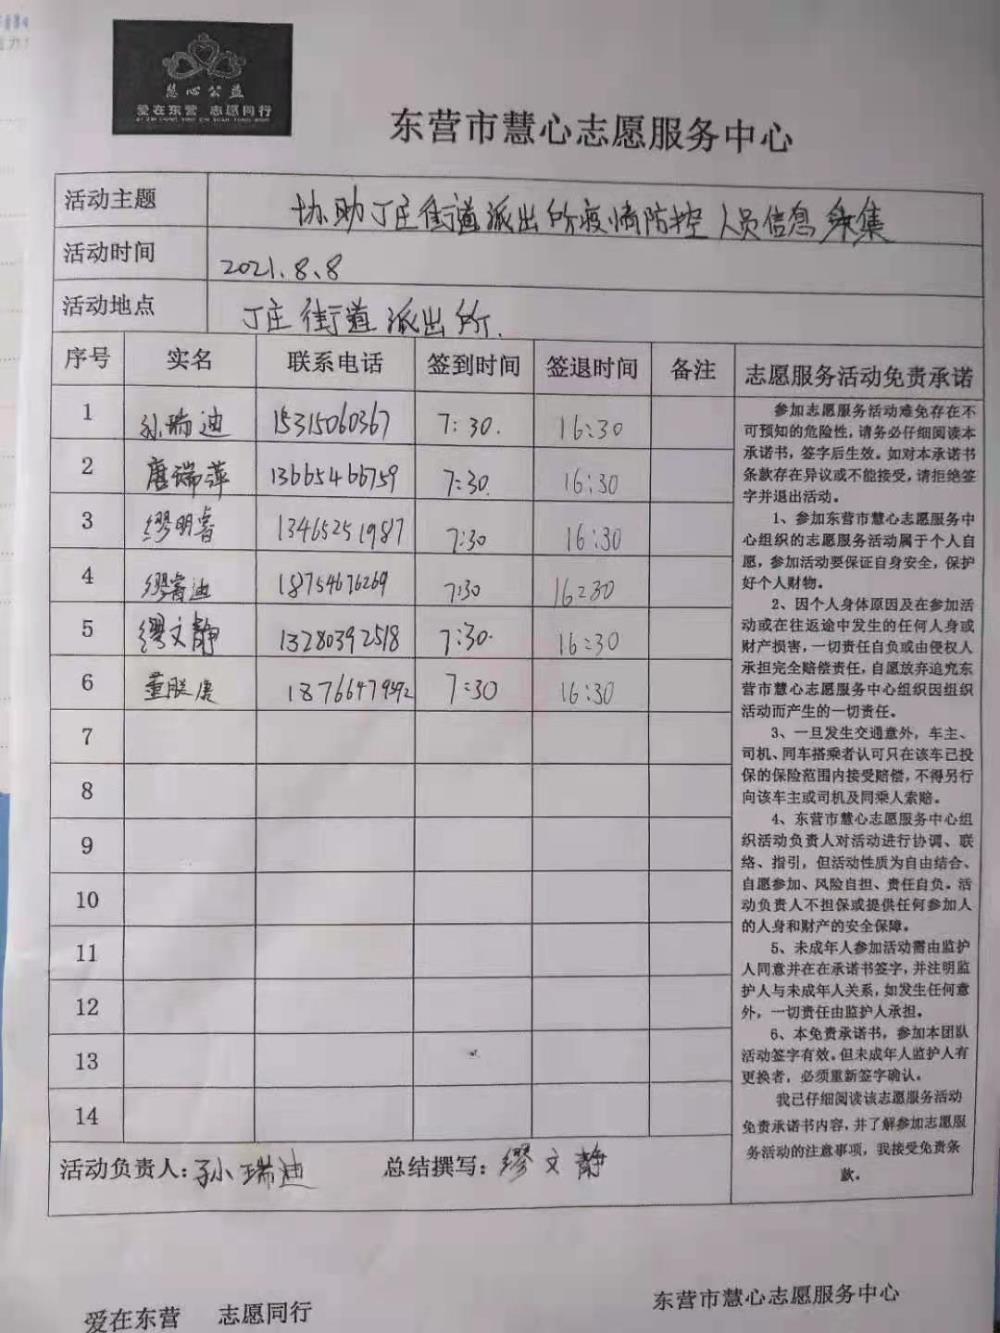 慧心公益
爱在东营 志愿同行
东营市慧心志愿服务中心
活动主题 协助丁庄街道派出所疫情防控人员信息采集
活动时间 2021.8.8
活动地点 丁庄街道派出所.
序号 实名 联系电话 签到时间 签退时间 备注 志愿服务活动免责承诺
1 孙瑞迪 15315060367 7:30. 16:30
2 唐瑞萍 13665466759 7:30. 16:30
3 缪明睿 13465251987 7:30 16:30
4 缪睿迪 18754676269 7:30 16:30
5 缪文静 13280392518 7:30. 16:30
6 董 7:30 16:30
7
8
9
10
11
12
13
14
参加志愿服务活动难免存在不
可预知的危险性,请务必仔细阅读本
承诺书,签字后生效。如对本承诺书
条款存在异议或不能接受,请拒绝签
字并退出活动。
1、参加东营市慧心志愿服务中
心组织的志愿服务活动属于个人自
愿,参加活动要保证自身安全,保护
好个人财物。
2、因个人身体原因及在参加活
动或在往返途中发生的任何人身或
财产损害,一切责任自负或由侵权人
承担完全赔偿责任,自愿放弃追究东
营市慧心志愿服务中心组织因组织
活动而产生的一切责任。
3、一旦发生交通意外,车主、
司机、同车搭乘者认可只在该车已投
保的保险范围内接受赔偿,不得另行
向该车主或司机及同乘人索赔。
4、东营市慧心志愿服务中心组
织活动负责人对活动进行协调、联
络、指引,但活动性质为自由结合、
自愿参加、风险自担、责任自负。活
动负责人不担保或提供任何参加人
的人身和财产的安全保障。
5、未成年人参加活动需由监护
人同意并在在承诺书签字,并注明监
护人与未成年人关系,如发生任何意
外,一切责任由监护人承担。
6、本免责承诺书,参加本团队
活动签字有效。但未成年人监护人有
更换者,必须重新签字确认。
我已仔细阅读该志愿服务活动
免责承诺书内容,并了解参加志愿服
务活动的注意事项,我接受免责条
款。
活动负责人:孙瑞迪 总结撰写:缪文静
爱在东营 志愿同行 东营市慧心志愿服务中心